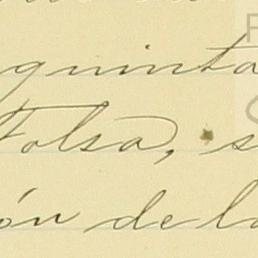 quinta
Tolsa, s
ón de la